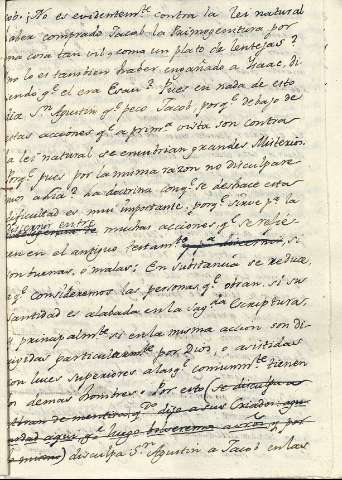 cob. ¿No es evidentemte contra la lei natural
haber comprado Jacob la Primogenitura por
una cosa tan vil, como un plato de lentejas?
no lo es tambien haber engañado a Ysaac, di
endo qe el era Esau? Pues en nada de esto
dice Sn Agustin qe peco Jacob, porqe debajo de
estas acciones, qe a primra vista son contra
la lei natural se encubrian grandes Misterios.
Porqe pues por la misma razon no disculpare
mos a La doctrina conqe se deshace esta
dificultad es mui importante, porqe sirve pa la
discernir entre
muchas acciones qe se refie
ren en el antiguo testamto pa discernir si
son buenas, ó malas. En substancia se reduce,
a qe consideremos las personas, qe obran, si su
santidad es alabada en la Sagda Escriptura,
y principalmte si en la misma accion son di
rigidas particularmte por Dios, o asistidas
con luces superiores a las qe comunmte tienen
los demas hombres. Por esto (se disculpa a
de mentira qdo dijo a sus Criados: aqui
qe luego bolveremos y por
lo mismo) disculpa Sn Agustin a Jacob en las